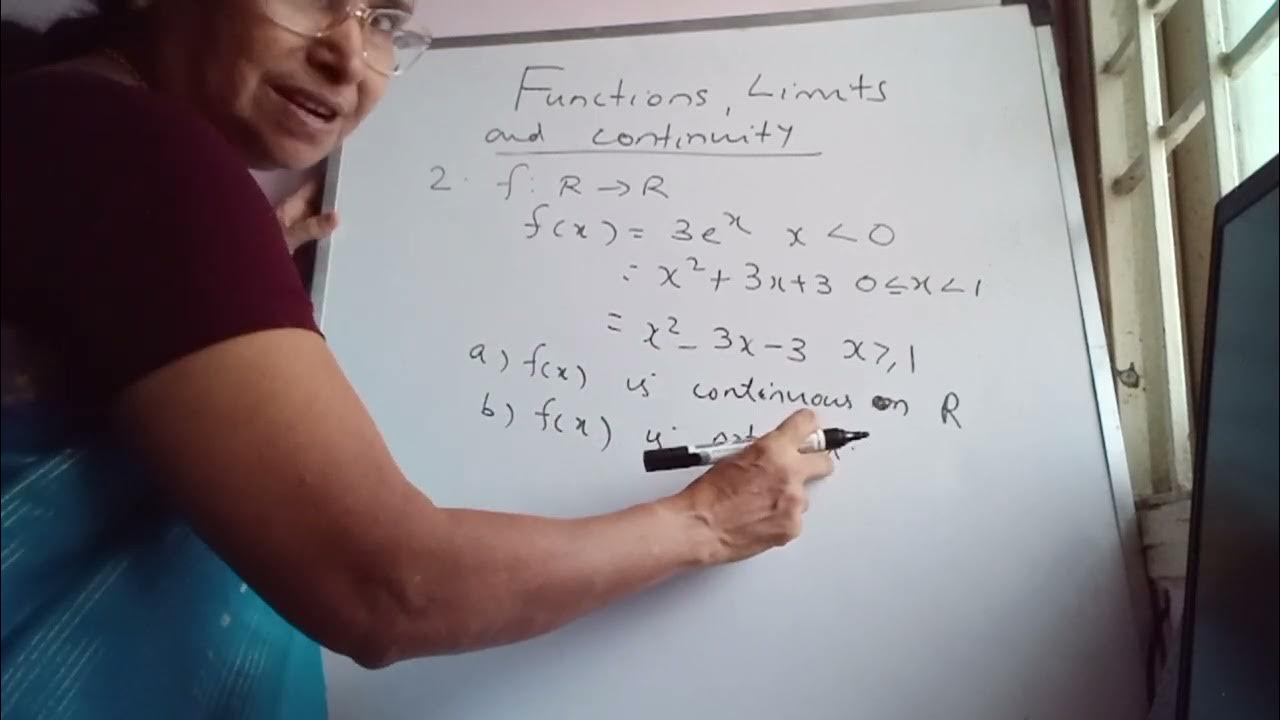 Functions, Limits
and continuity
2. f: R → R
f(x) = 3e^x x < 0
= x² + 3x + 3 0 ≤ x < 1
= x² - 3x - 3 x ≥ 1
a) f(x) is continuous on R
b) f(x) is not